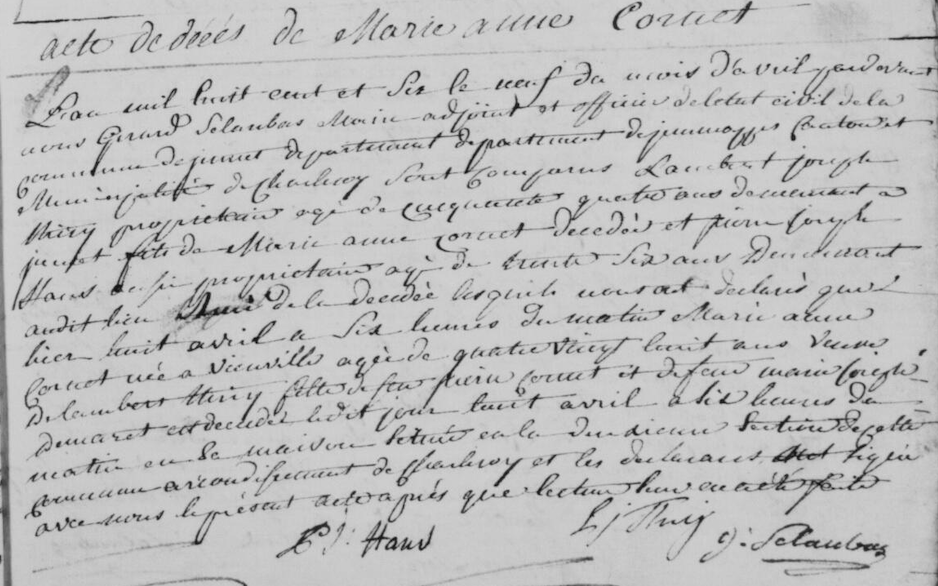 acte de décés de Marie anne Cornet
L'an mil huit cent et Six le neuf du mois d'avril pardevant
nous Girard Selaubas Maire adjoint et officier de letat civil de la
commune de jumet departement departement de jemmappes Canton et
Municipalité de Charleroy Sont Comparus Lambert joseph
thiry proprietaire agé de cinquante quatre ans demeurant a
jumet fils de Marie anne cornet decedée et pierre joseph
Hans proprietaire agé de trente Six ans Demeurant
audit lieu Ami de la decedée lesquels nous ont declarés que
hier huit avril a Six heures du matin Marie anne
Cornet née a viesville agée de quatre vingt huit ans veuve
De lambert thiry fille de feu pierre cornet et de feue marie joseph
demaret est decedée ledit jour huit avril a Six heures du
matin en Sa maison Scituée en la deuxieme Section de cette
commune arrondissement de Charleroy et les declarans ont Signé
avec nous le présent acte aprés que lecture leur en a été faite
P: j: Hans L j Thiry
g: Selaubas